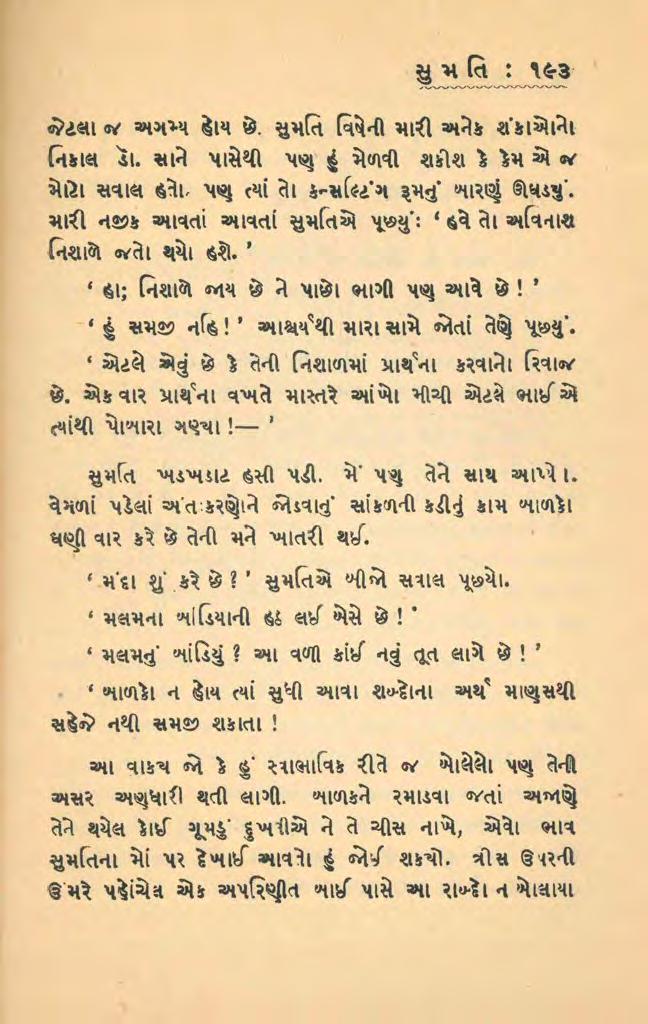 સુમતિ : ૧૯૩
જેટલા જ અગમ્ય હોય છે. સુમતિ વિષેની મારી અનેક શંકાઓનો
નિકાલ ડૉ. સાને પાસેથી પણ હું મેળવી શકીશ કે કેમ એ જ
મોટો સવાલ હતો. પણ ત્યાં તો કન્સલ્ટિંગ રૂમનું બારણું ઊઘડયું.
મારી નજીક આવતાં આવતાં સુમતિએ પૂછ્યું: ‘ હવે તો અવિનાશ
નિશાળે જતો થયો હશે. ’
‘ હા; નિશાળે જાય છે ને પાછો ભાગી પણ આવે છે ! ’
‘ હું સમજી નહિ ! ’ આશ્ચર્યથી મારા સામે જોતાં તેણે પૂછ્યું.
‘ એટલે એવું છે કે તેની નિશાળમાં પ્રાર્થના કરવાનો રિવાજ
છે. એક વાર પ્રાર્થના વખતે માસ્તરે આંખો મીચી એટલે ભાઈ એ
ત્યાંથી પોબારા ગણ્યા !— ’
સુમતિ ખડખડાટ હસી પડી. મેં પણ તેને સાથ આપ્યો.
વેગળાં પડેલાં અંતઃકરણોને જોડવાનું સાંકળની કડીનું કામ બાળકો
ઘણી વાર કરે છે તેની મને ખાતરી થઈ.
‘ મંદા શું કરે છે ? ’ સુમતિએ બીજો સવાલ પૂછયો.
‘ મલમના બાંડિયાની હઠ લઈ બેસે છે ! ’
‘ મલમનું બાંડિયું ? આ વળી કાંઈ નવું તૂત લાગે છે ! ’
‘ બાળકો ન હોય ત્યાં સુધી આવા શબ્દોના અર્થ માણુસથી
સહેજે નથી સમજી શકાતા !
આ વાકય જો કે હું સ્વાભાવિક રીતે જ બોલેલો પણ તેની
અસર અણધારી થતી લાગી. બાળકને રમાડવા જતાં અજાણે
તેને થયેલ કોઈ ગૂમડું દુખવીએ ને તે ચીસ નાખે, એવો ભાવ
સુમતિના મોં પર દેખાઈ આવતો હું જોઈ શકયો. ત્રીસ ઉપરની
ઉંમરે પહોંચેલ એક અપરિણીત બાઈ પાસે આ શબ્દો ન બોલાયા